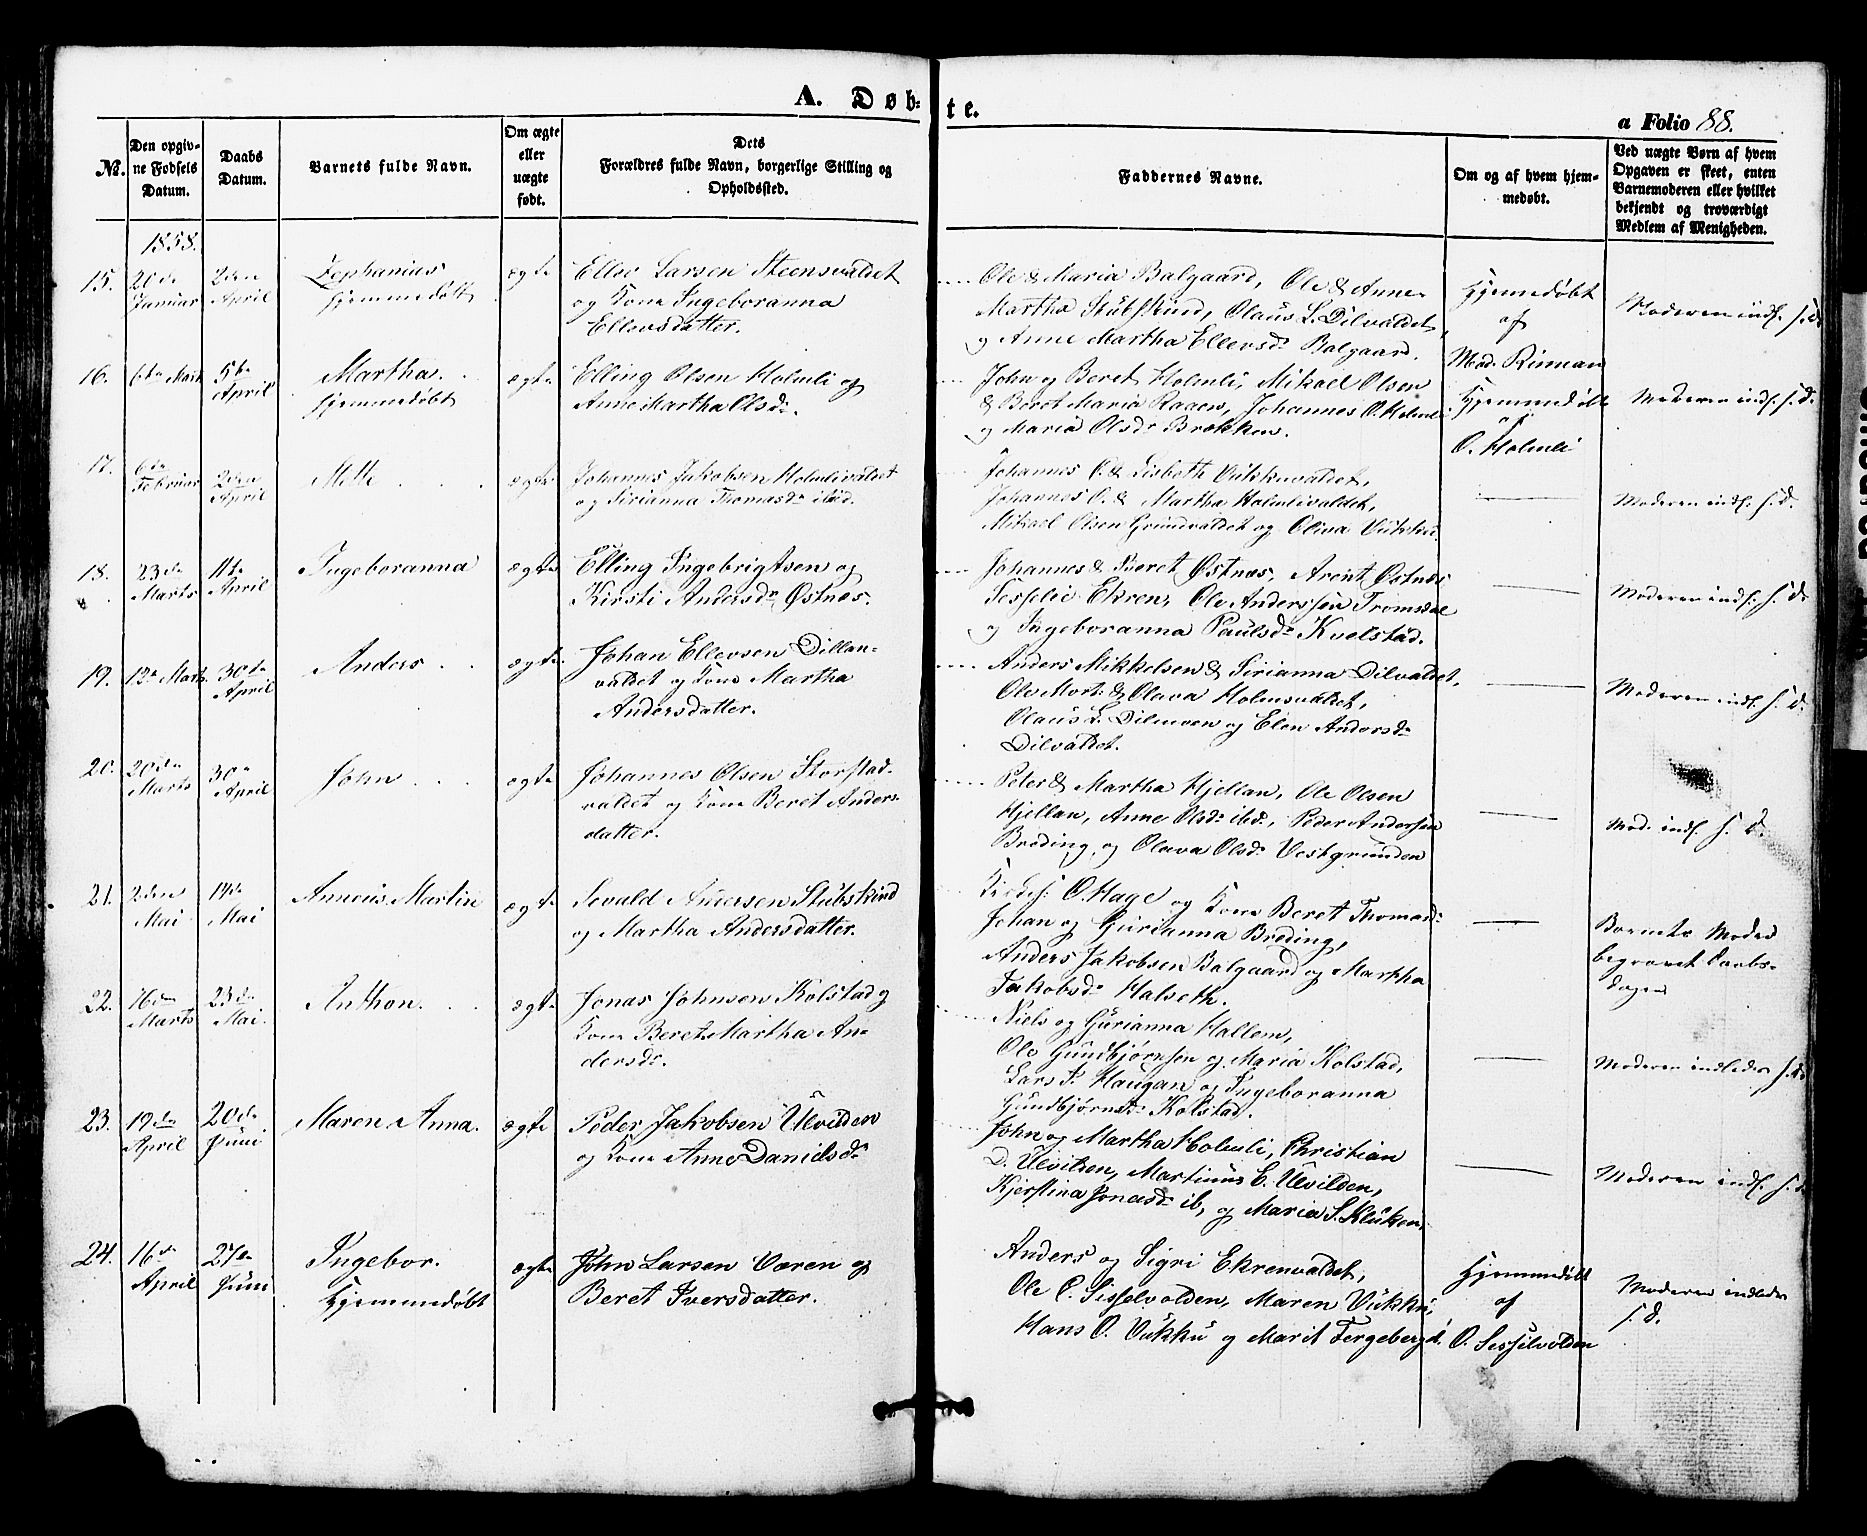 A. Døb-
te.
a Folio 88.
No.
Den opgiv-
ne Fødsels
Datum.
Daabs
Datum.
Barnets fulde Navn.
Om ægte
eller
uægte
født.
Dets
Forældres fulde Navn, borgerlige Stilling og
Opholdssted.
Faddernes Navne.
Om og af hvem hjem-
medøbt.
Ved uægte Børn af hvem
Opgaven er skeet, enten
Barnemoderen eller hvilket
bekjendt og troværdigt
Medlem af Menigheden.
1858.
15.
20de
Januar
2den
April
Zephanius
hjemmedøbt
ægte
Ellev Larsen Steensvaldet
og Kone Ingeboranna
Ellevsdatter.
Ole & Maria Balgaard, Ole & Anne
Martha Stubskind, Olaus L. Dilvaldet,
og Anne Martha Ellevsdr Balgaard.
Hjemmedøbt
af
Mad. Rinnan
Moderen indl. s. d.
16.
6te Mart
5te
April
Martha.
hjemmedøbt
ægte
Elling Olsen Holmli og
Anne Martha Olsdr.
John og Beret Holmli, Mikael Olsen
& Beret Maria Raaen, Johannes O. Holmli
og Maria Olsdr Brækken.
Hjemmedøbt
af
O. Holmli
Moderen indl. s. d.
17.
6te
Februar
2den
April
Mette
ægte
Johannes Jakobsen Holmlivaldet
og Sirianna Thomasdr ibid.
Johannes O. & Lisbeth Vukkuvaldet,
Johannes O. & Martha Holmlivaldet,
Mikael Olsen Grundvaldet og Oliva Vukku.
Moderen indl. s. d.
18.
23de
Marts
11te
April
Ingeboranna
ægte
Elling Ingebrigtsen og
Kirsti Andersdr Østnes.
Johannes & Beret Østnes, Arent Østnes
Sesselie Ekren, Ole Anderssen Tromsdal
og Ingeboranna Paulsdr Kvelstad.
Moderen indl. s. d.
19.
12te Marts.
30te
April
Anders
ægte
Johan Ellevsen Dillan-
valdet og Kone Martha
Andersdatter.
Anders Mikkelsen & Sirianna Dilvaldet,
Ole Mort. & Olava Holmsvaldet,
Olaus L. Dilmoen og Elen Andersdr
Dilvaldet.
Moderen indl. s. d.
20.
20de
Marts
30te
April
John
ægte
Johannes Olsen Storstad-
valdet og Kone Beret Anders-
datter.
Peter & Martha Hjellan, Ole Olsen
Hjellan, Anne Olsdr ibd., Peder Anderssen
Breding, og Olava Olsdr Vestgrunden
Mod. indl. s. d.
21.
2den
Mai
14de
Mai
Anneus Martin
ægte
Sevald Andersen Stubskind
og Martha Andersdatter.
O. Hage og Kone Beret Thomasdr
Johan og Gurianna Breding,
Anders Jakobsen Balgaard og Martha
Jakobsdr Halseth.
Barnets Moder
begravet Daabs-
dagen
22.
16den
Marts
23de
Mai.
Anthon.
ægte
Jonas Johnsen Kolstad og
Kone Beret Martha An-
dersdr.
Niels og Gurianna Hallem,
Ole Gundbjørnsen og Maria Kolstad,
Lars P. Haugan og Ingeboranna
Gundbjørnsdr Kolstad.
Moderen indledes s. d.
23.
19de
April
20de
Juni
Maren Anna.
ægte
Peder Jakobsen Ulvilden
og Kone Anne Danielsdr
John og Martha Holmli, Christian
D. Ulvilden, Martinus E. Ulvilden,
Kjerstina Jonasdr ib, og Maria S. Kluken.
Moderen indl. s. d.
24.
16de
April
27de
Juni
Ingebor.
Hjemmedøbt
ægte
John Larsen Væren og
Beret Iversdatter.
Anders og Sigri Ekrenvaldet,
Ole O. Sisselvolden, Maren Vukku,
Hans O. Vukku og Marit Tergeberget.
Hjemmedøbt
af
O. Sesselvolden
Moderen indledes
s. d.